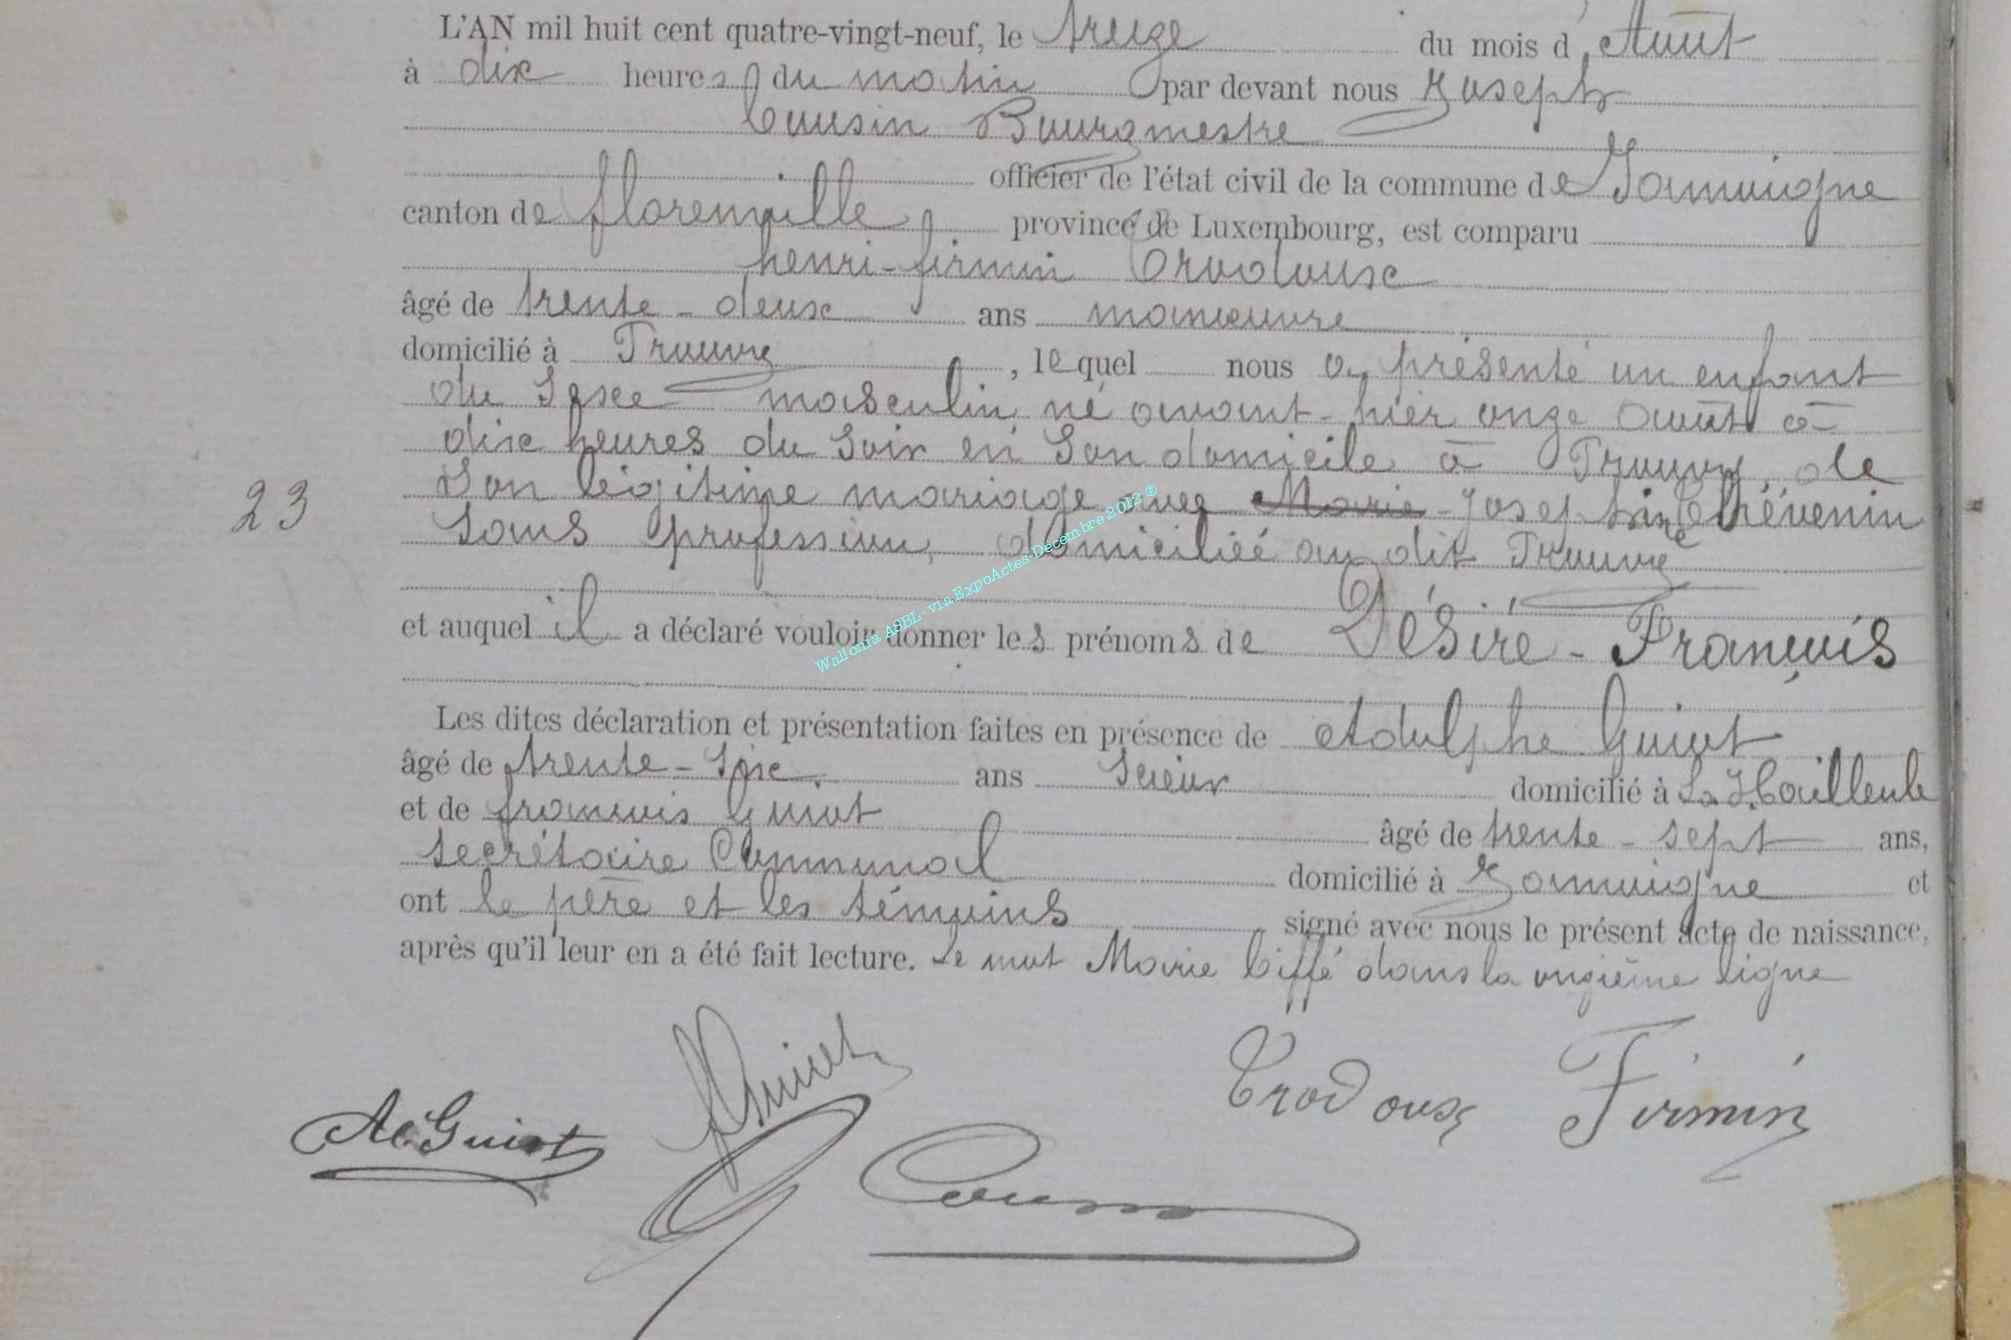 L'AN mil huit cent quatre-vingt-neuf, le treize du mois d'Août
à dix heures du matin par devant nous Joseph
Cousin Bourgmestre
officier de l'état civil de la commune de Jamoigne
canton de florenville province de Luxembourg, est comparu
henri-firmin Crodoux
âgé de trente-deux ans manœuvre
domicilié à Prouvy, lequel nous a présenté un enfant
du sexe masculin né avant-hier onze Août à
dix heures du soir en son domicile à Prouvy, de
23
son légitime mariage avec Marie-Josephine Thévenin
sans profession, domiciliée au dit Prouvy
et auquel il a déclaré vouloir donner les prénoms de Désiré-François
Les dites déclaration et présentation faites en présence de Adolphe Guiot
âgé de trente-six ans Scieur domicilié à La Hailleule
et de françois Guiot âgé de trente-sept ans,
secrétaire Communal domicilié à Jamoigne et
ont le père et les témoins signé avec nous le présent acte de naissance,
après qu'il leur en a été fait lecture. Le mot Marie biffé dans la onzième ligne
Ad Guiot
F Guiot
Crodoux Firmin
Cousin
Wallonia ASBL - via ExpoActes-Decembre 2012 ®